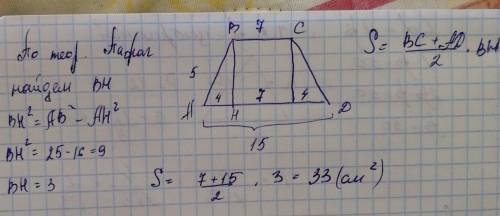 По теор. Пифаг
найдем BH
BH² = AB² - AH²
BH² = 25 - 16 = 9
BH = 3
B 7 C
5
A 4 H 7 4 D
15
S = (BC + AD)/2 · BH
S = (7 + 15)/2 · 3 = 33 (см²)